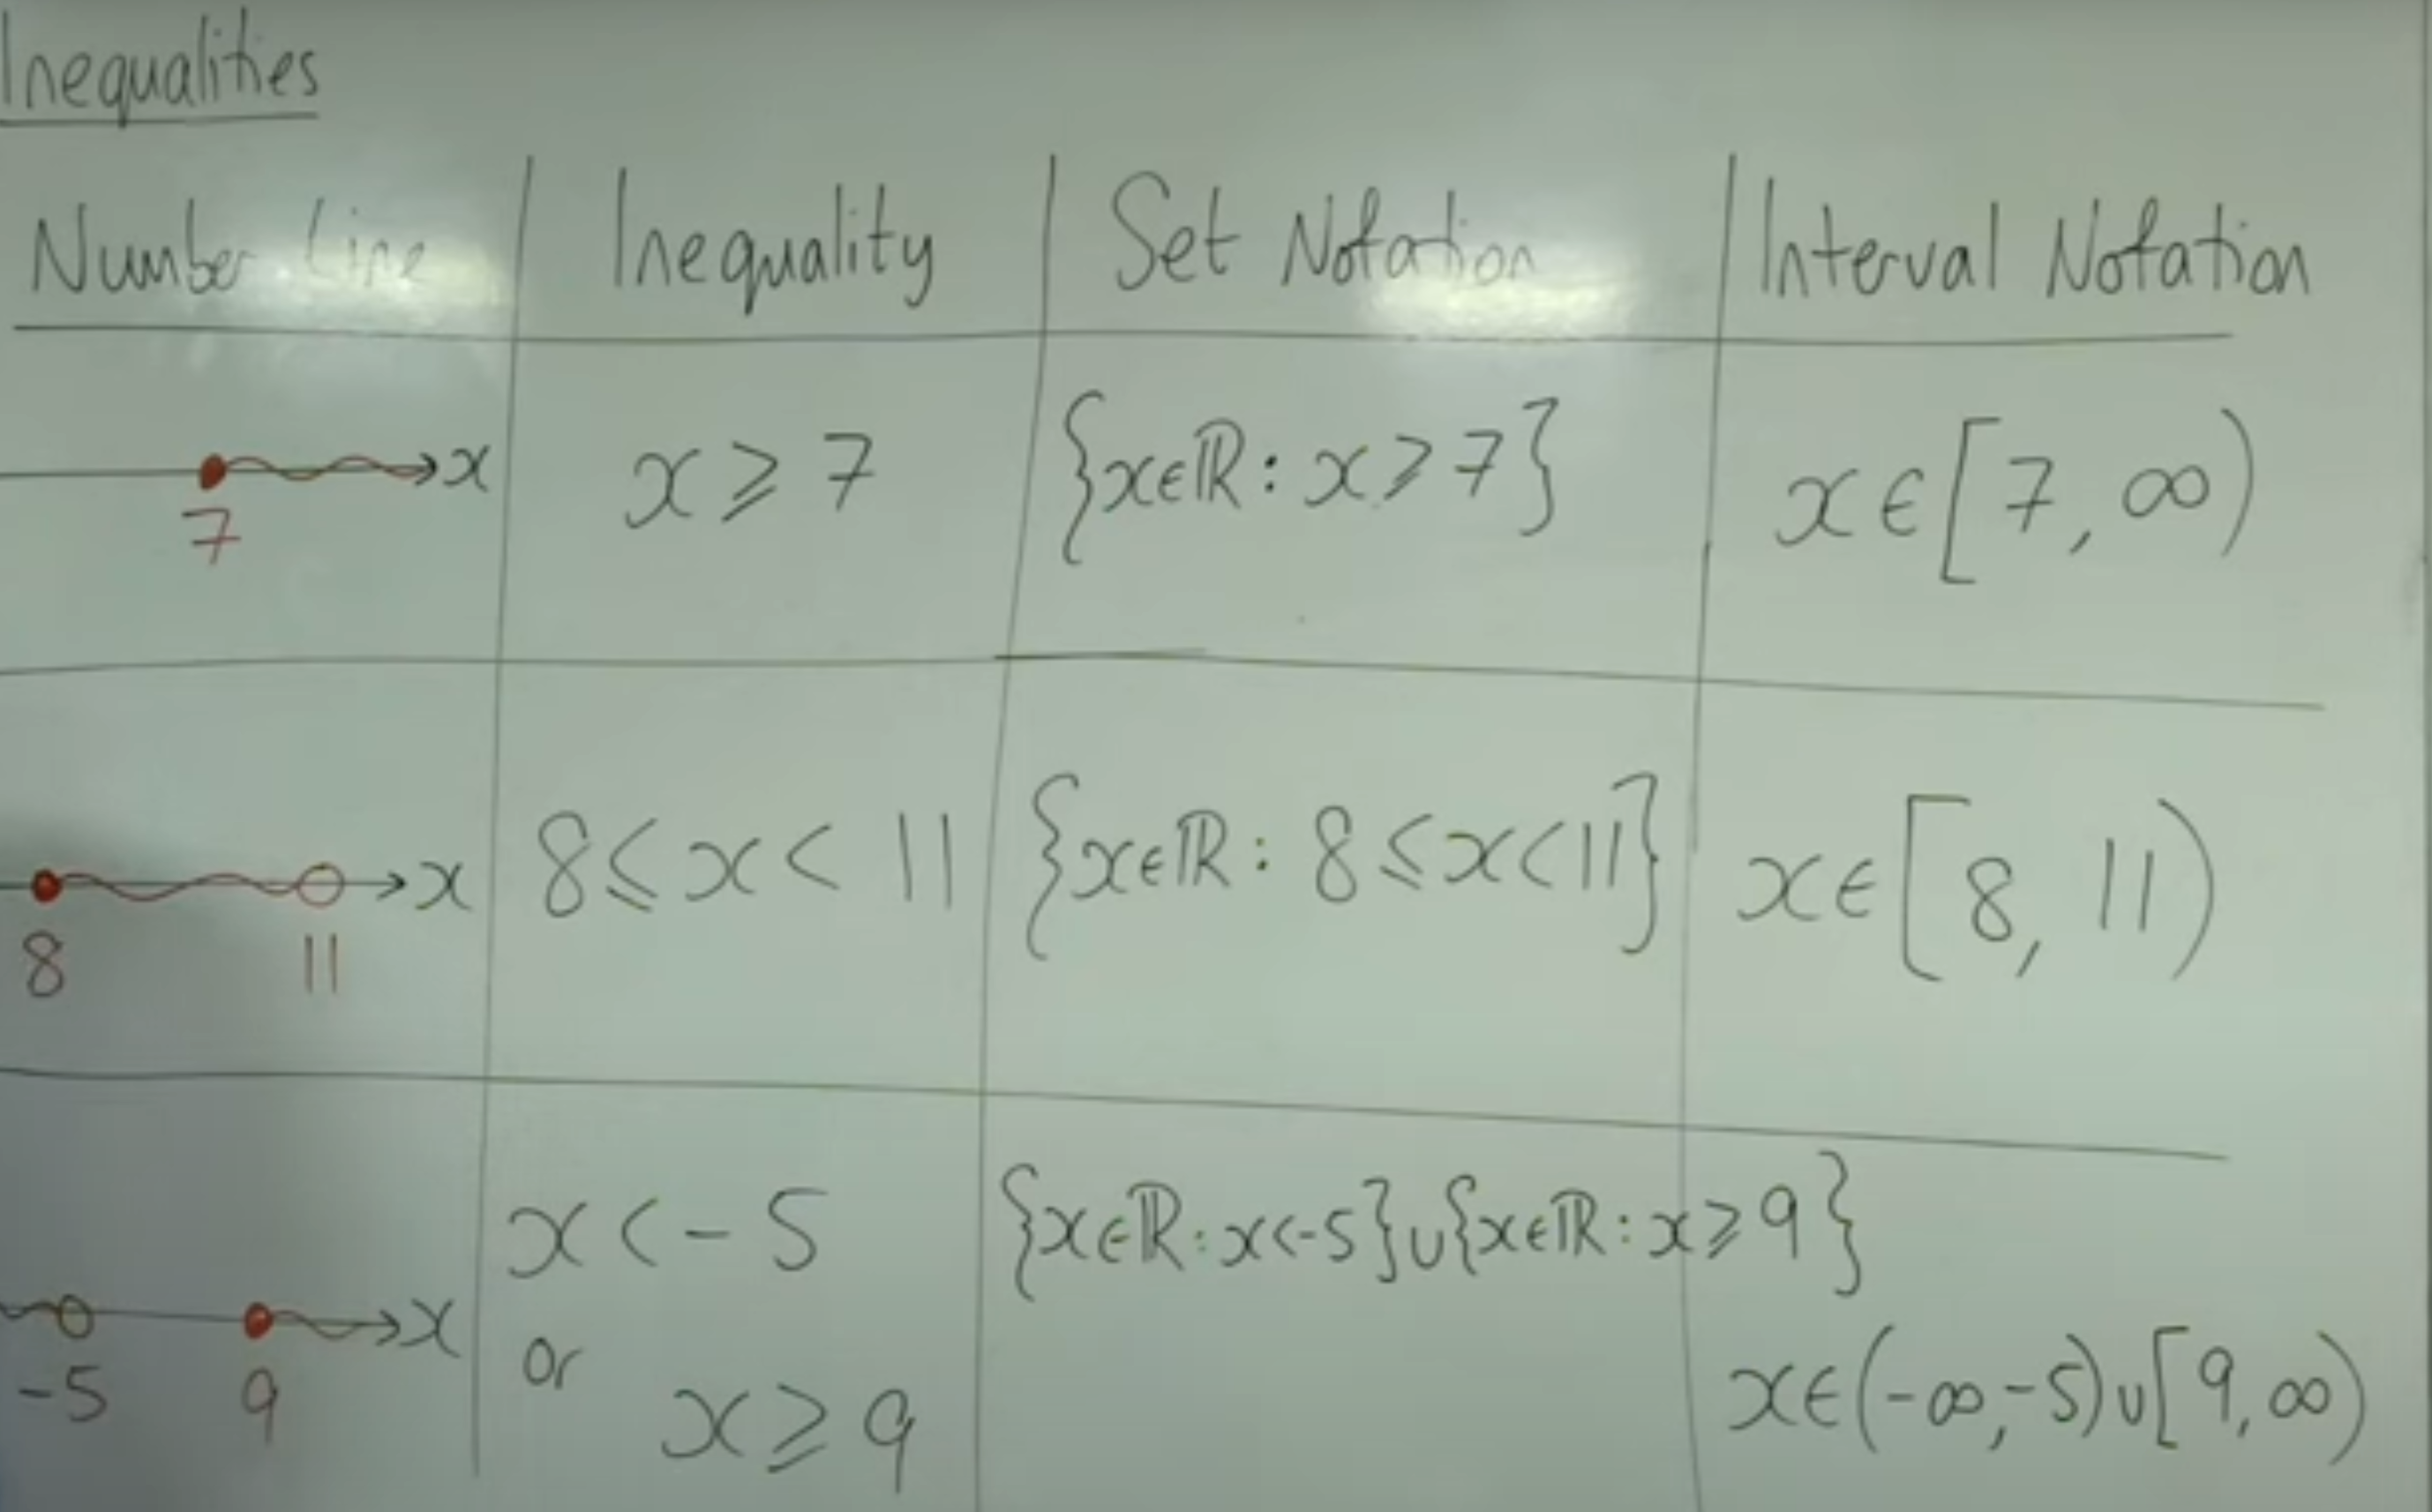 Inequalities
Number Line Inequality Set Notation Interval Notation
x x ⩾ 7 {x∈ℝ : x ⩾ 7} x ∈ [7, ∞)
7
x 8 ≤ x < 11 {x∈ℝ : 8 ≤ x < 11} x ∈ [8, 11)
8 11
x < -5 {x∈ℝ : x < -5} ∪ {x∈ℝ : x ⩾ 9}
x or
-5 9 x ⩾ 9 x ∈ (-∞, -5) ∪ [9, ∞)